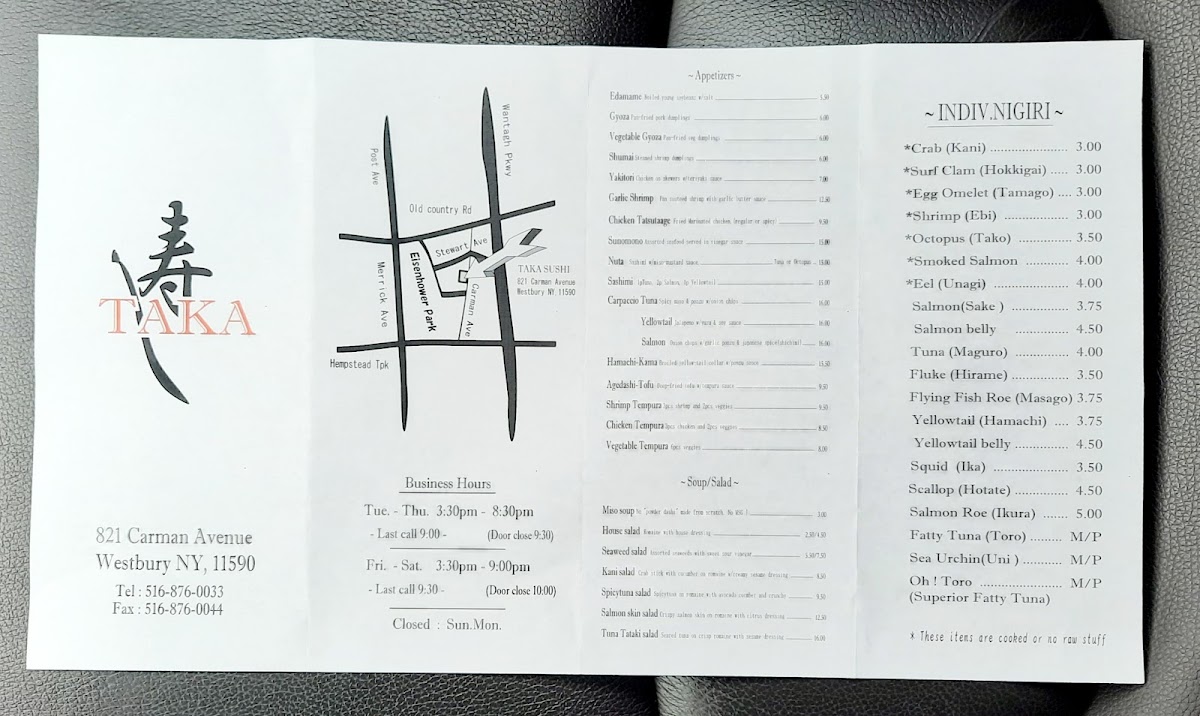 寿
TAKA
821 Carman Avenue
Westbury NY, 11590
Tel : 516-876-0033
Fax : 516-876-0044
Post Ave
Wantagh Pkwy
Old country Rd
Stewart Ave
Eisenhower Park
Merrick Ave
Carman Ave
TAKA SUSHI
821 Carman Avenue
Westbury NY, 11590
Hempstead Tpk
Business Hours
Tue. - Thu. 3:30pm - 8:30pm
- Last call 9:00 - (Door close 9:30)
Fri. - Sat. 3:30pm - 9:00pm
- Last call 9:30 - (Door close 10:00)
Closed : Sun.Mon.
~ Appetizers ~
Edamame
Gyoza Pan-fried pork dumplings 6.00
Vegetable Gyoza Pan-fried veg dumplings 6.00
Shumai Steamed shrimp dumplings 6.00
Yakitori 7.00
Garlic Shrimp Pan sauteed shrimp with garlic butter sauce 12.50
Chicken Tatsutaage Fried Marinated chicken, (regular or spicy) 9.50
Sunomono Assorted seafood served in vinegar sauce 15.00
Nuta Tuna or Octopus 15.00
Sashimi 15.00
Carpaccio Tuna 16.00
Yellowtail 16.00
Salmon 16.00
Hamachi-Kama 15.50
Agedashi-Tofu 9.50
Shrimp Tempura 9.50
Chicken Tempura 8.50
Vegetable Tempura 8.00
~ Soup/Salad ~
Miso soup No "powder dashi" made from scratch. (No MSG) 3.00
House salad Romaine with house dressing 2.50/4.50
Seaweed salad 5.50/7.50
Kani salad 8.50
Spicytuna salad 9.50
Salmon skin salad Crispy salmon skin on romaine with citrus dressing 12.50
Tuna Tataki salad Seared tuna on crisp romaine with sesame dressing 16.00
~ INDIV.NIGIRI ~
*Crab (Kani) 3.00
*Surf Clam (Hokkigai) 3.00
*Egg Omelet (Tamago) 3.00
*Shrimp (Ebi) 3.00
*Octopus (Tako) 3.50
*Smoked Salmon 4.00
*Eel (Unagi) 4.00
Salmon(Sake ) 3.75
Salmon belly 4.50
Tuna (Maguro) 4.00
Fluke (Hirame) 3.50
Flying Fish Roe (Masago) 3.75
Yellowtail (Hamachi) 3.75
Yellowtail belly 4.50
Squid (Ika) 3.50
Scallop (Hotate) 4.50
Salmon Roe (Ikura) 5.00
Fatty Tuna (Toro) M/P
Sea Urchin(Uni ) M/P
Oh ! Toro M/P
(Superior Fatty Tuna)
* These items are cooked or no raw stuff